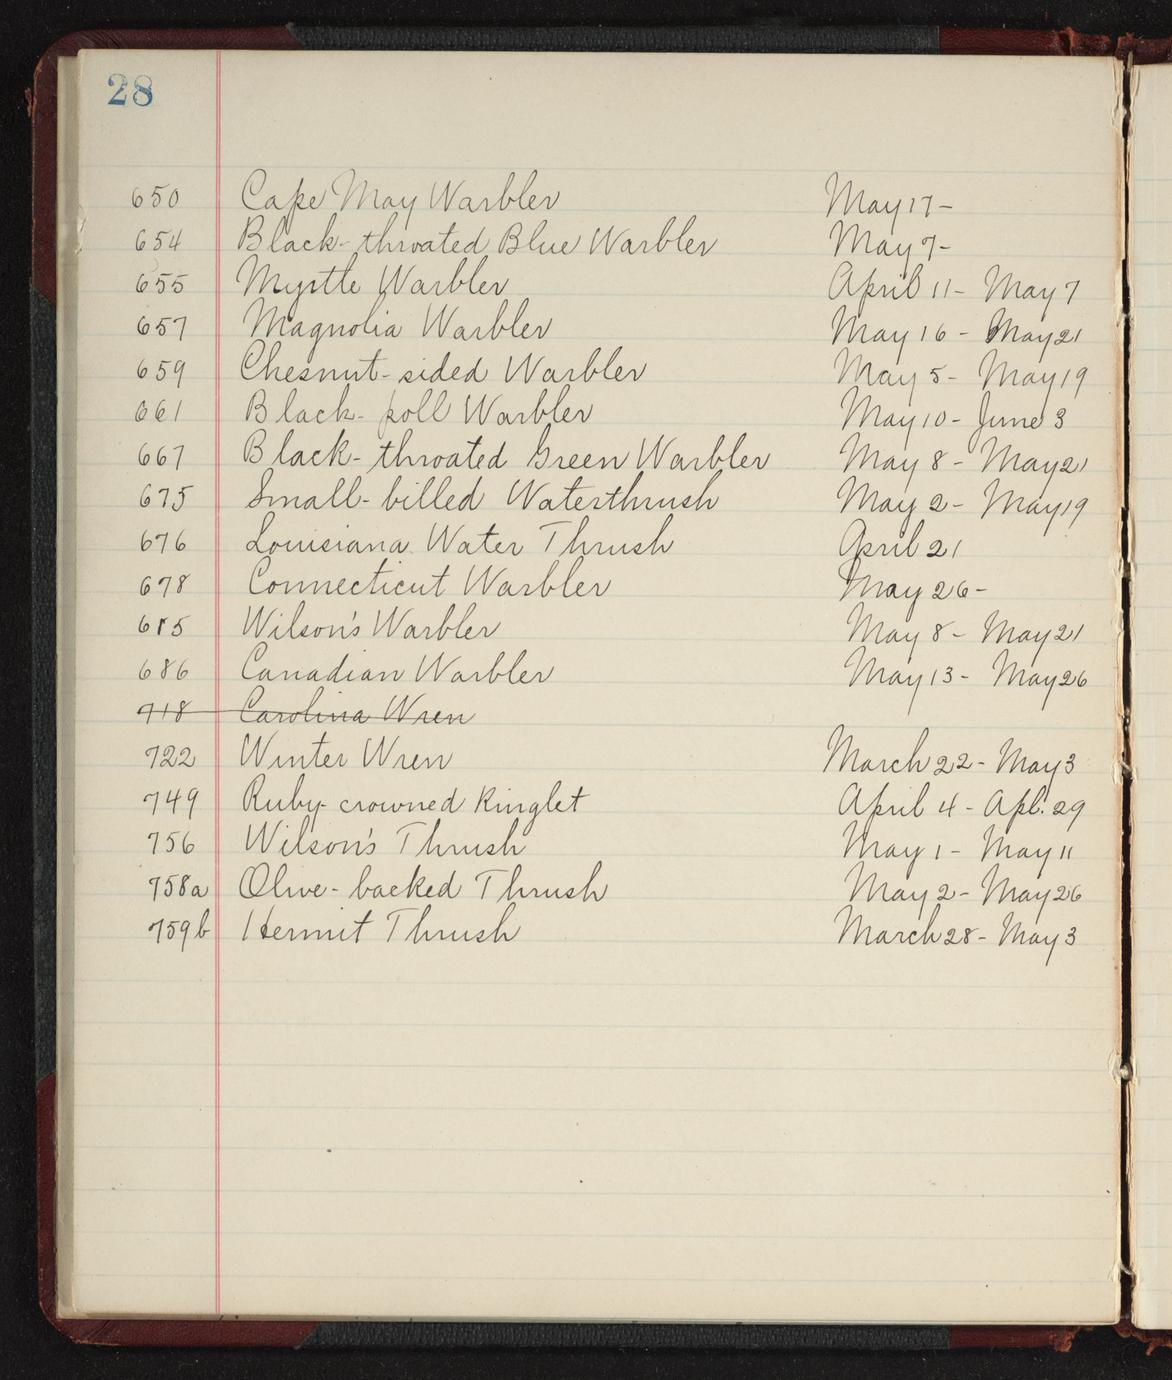 28
650 Cape May Warbler May 17-
654 Black-throated Blue Warbler May 7-
655 Myrtle Warbler April 11- May 7
657 Magnolia Warbler May 16 - May 21
659 Chesnut-sided Warbler May 5- May 19
661 Black-poll Warbler May 10- June 3
667 Black-throated Green Warbler May 8 - May 21
675 Small-billed Waterthrush May 2- May 19
676 Louisiana Water Thrush April 21
678 Connecticut Warbler May 26-
685 Wilson's Warbler May 8- May 21
686 Canadian Warbler May 13- May 26
718 Carolina Wren
722 Winter Wren March 22- May 3
749 Ruby-crowned Kinglet April 4 - Apl. 29
756 Wilson's Thrush May 1- May 11
758a Olive-backed Thrush May 2- May 26
759b Hermit Thrush March 28- May 3